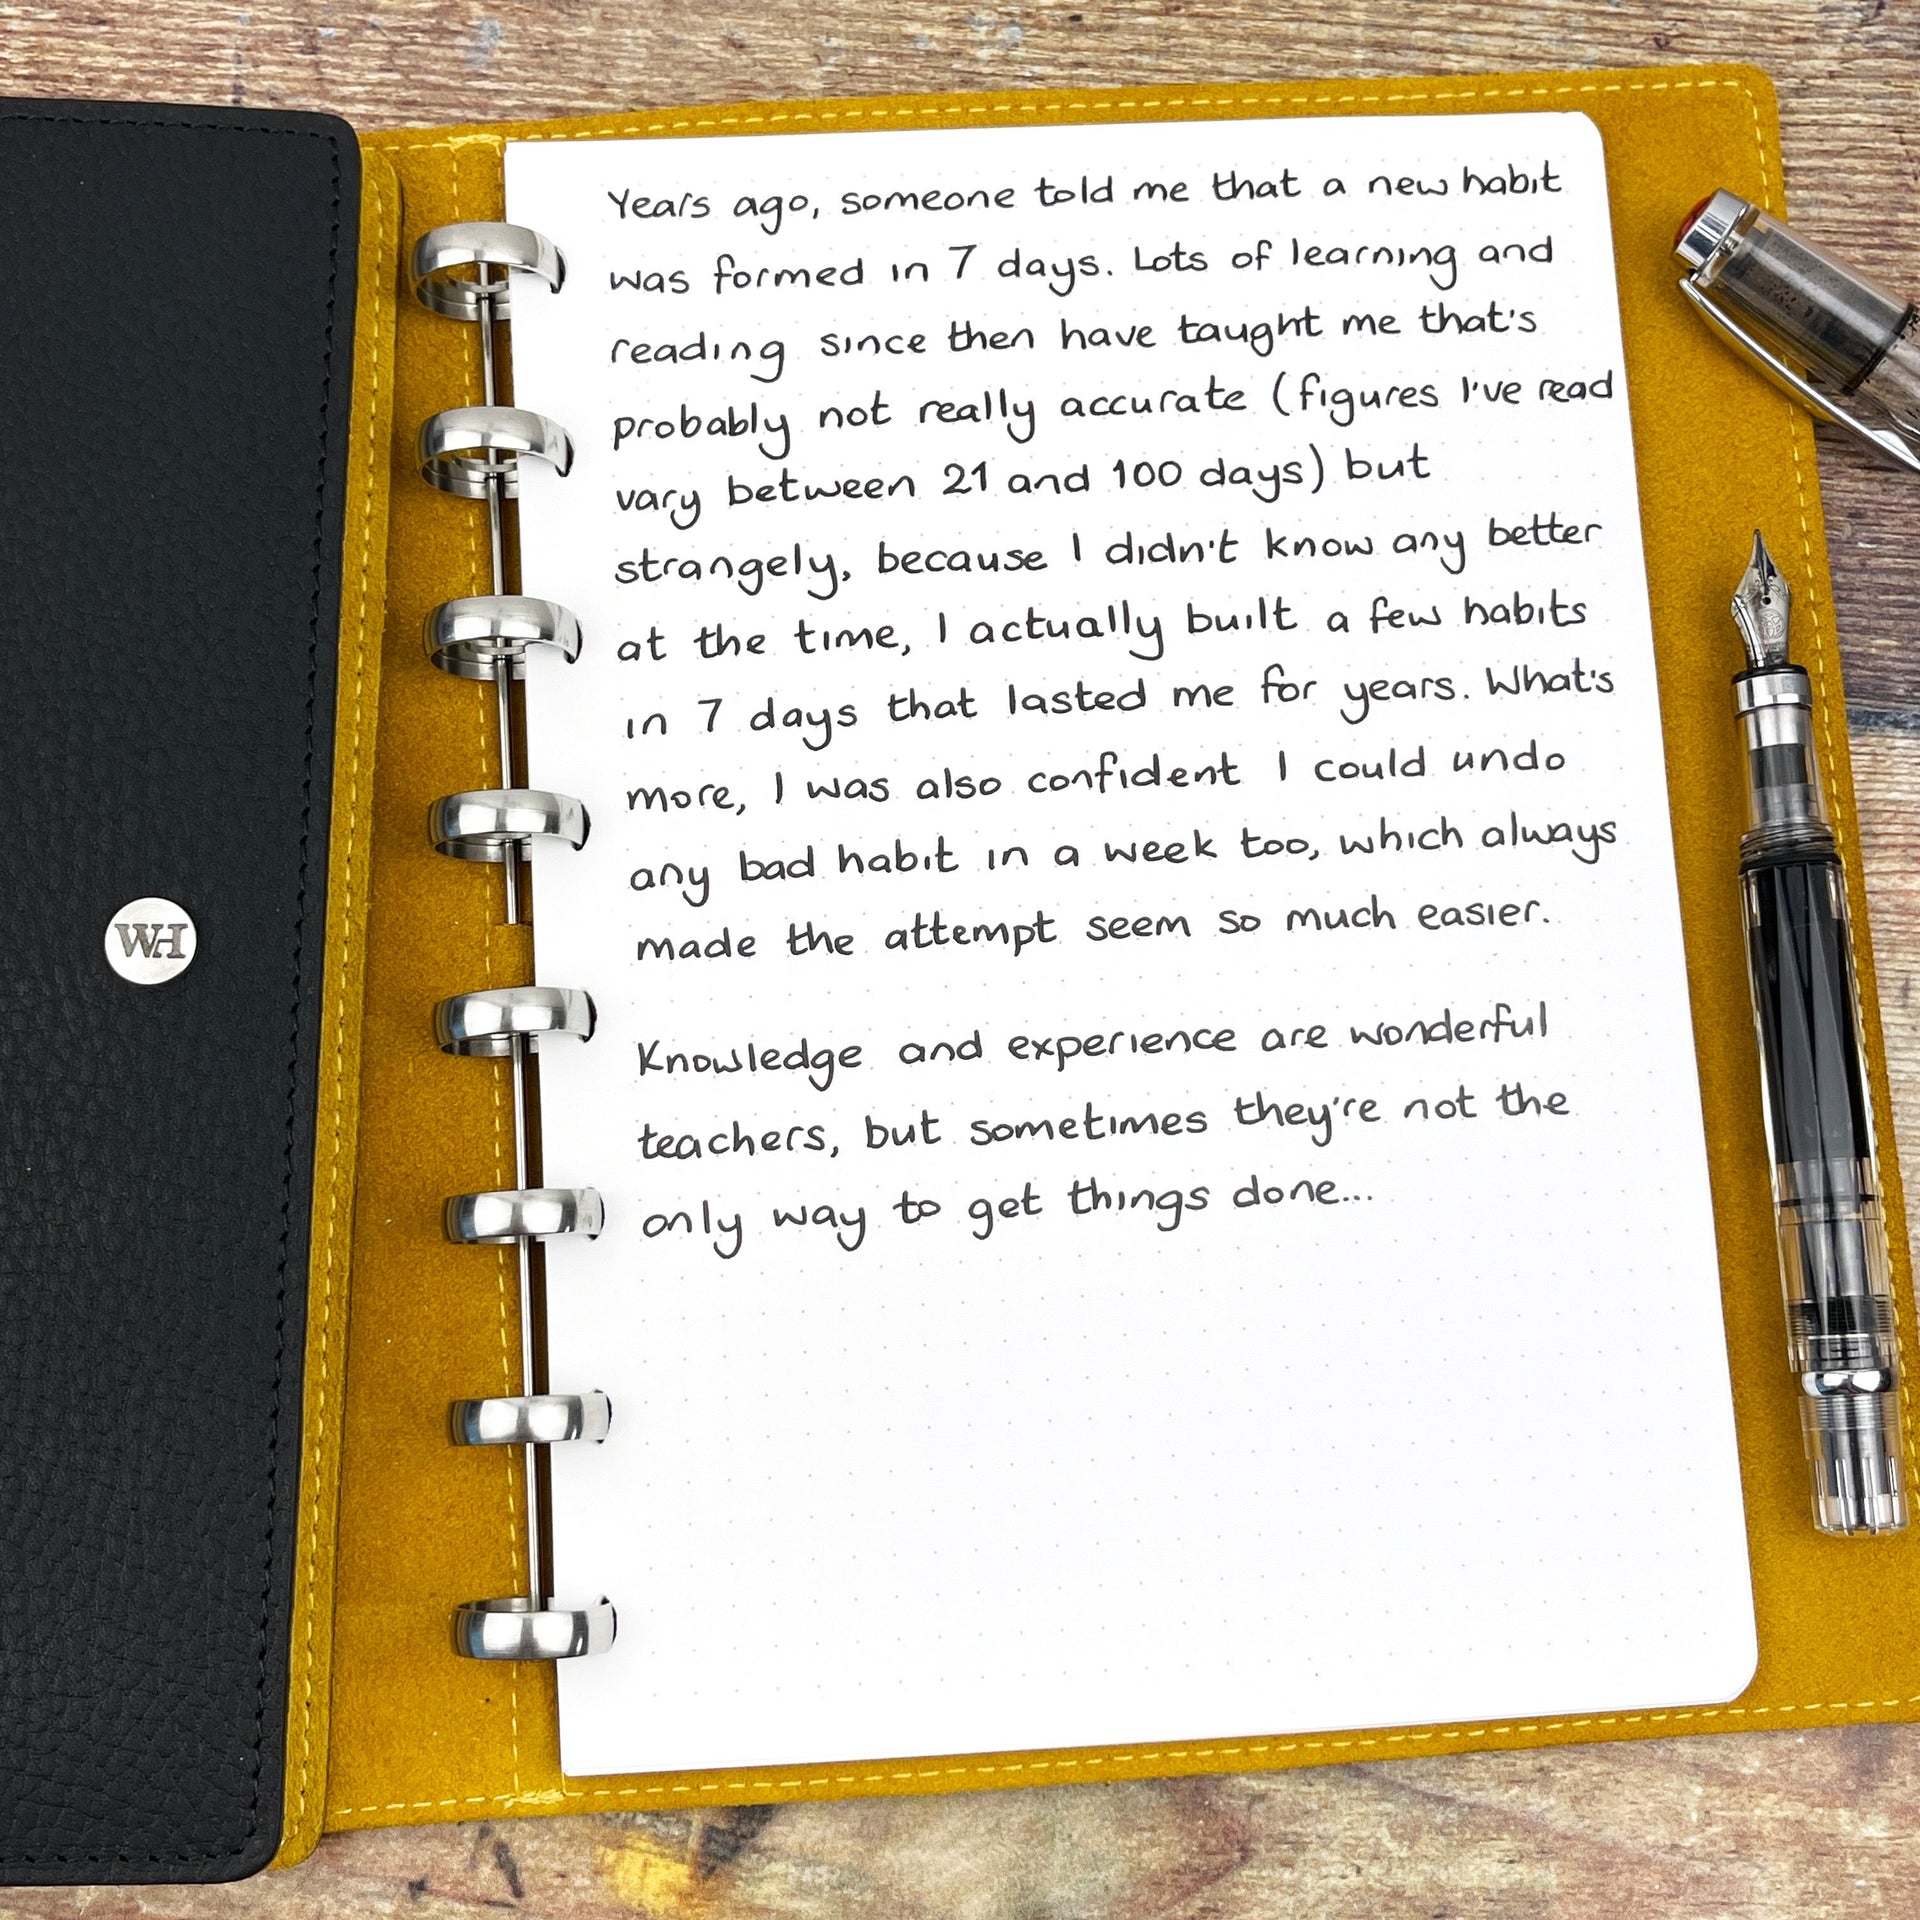 WH
Years ago, someone told me that a new habit
was formed in 7 days. Lots of learning and
reading since then have taught me that's
probably not really accurate (figures I've read
vary between 21 and 100 days) but
strangely, because I didn't know any better
at the time, I actually built a few habits
in 7 days that lasted me for years. What's
more, I was also confident I could undo
any bad habit in a week too, which always
made the attempt seem so much easier.
Knowledge and experience are wonderful
teachers, but sometimes they're not the
only way to get things done...